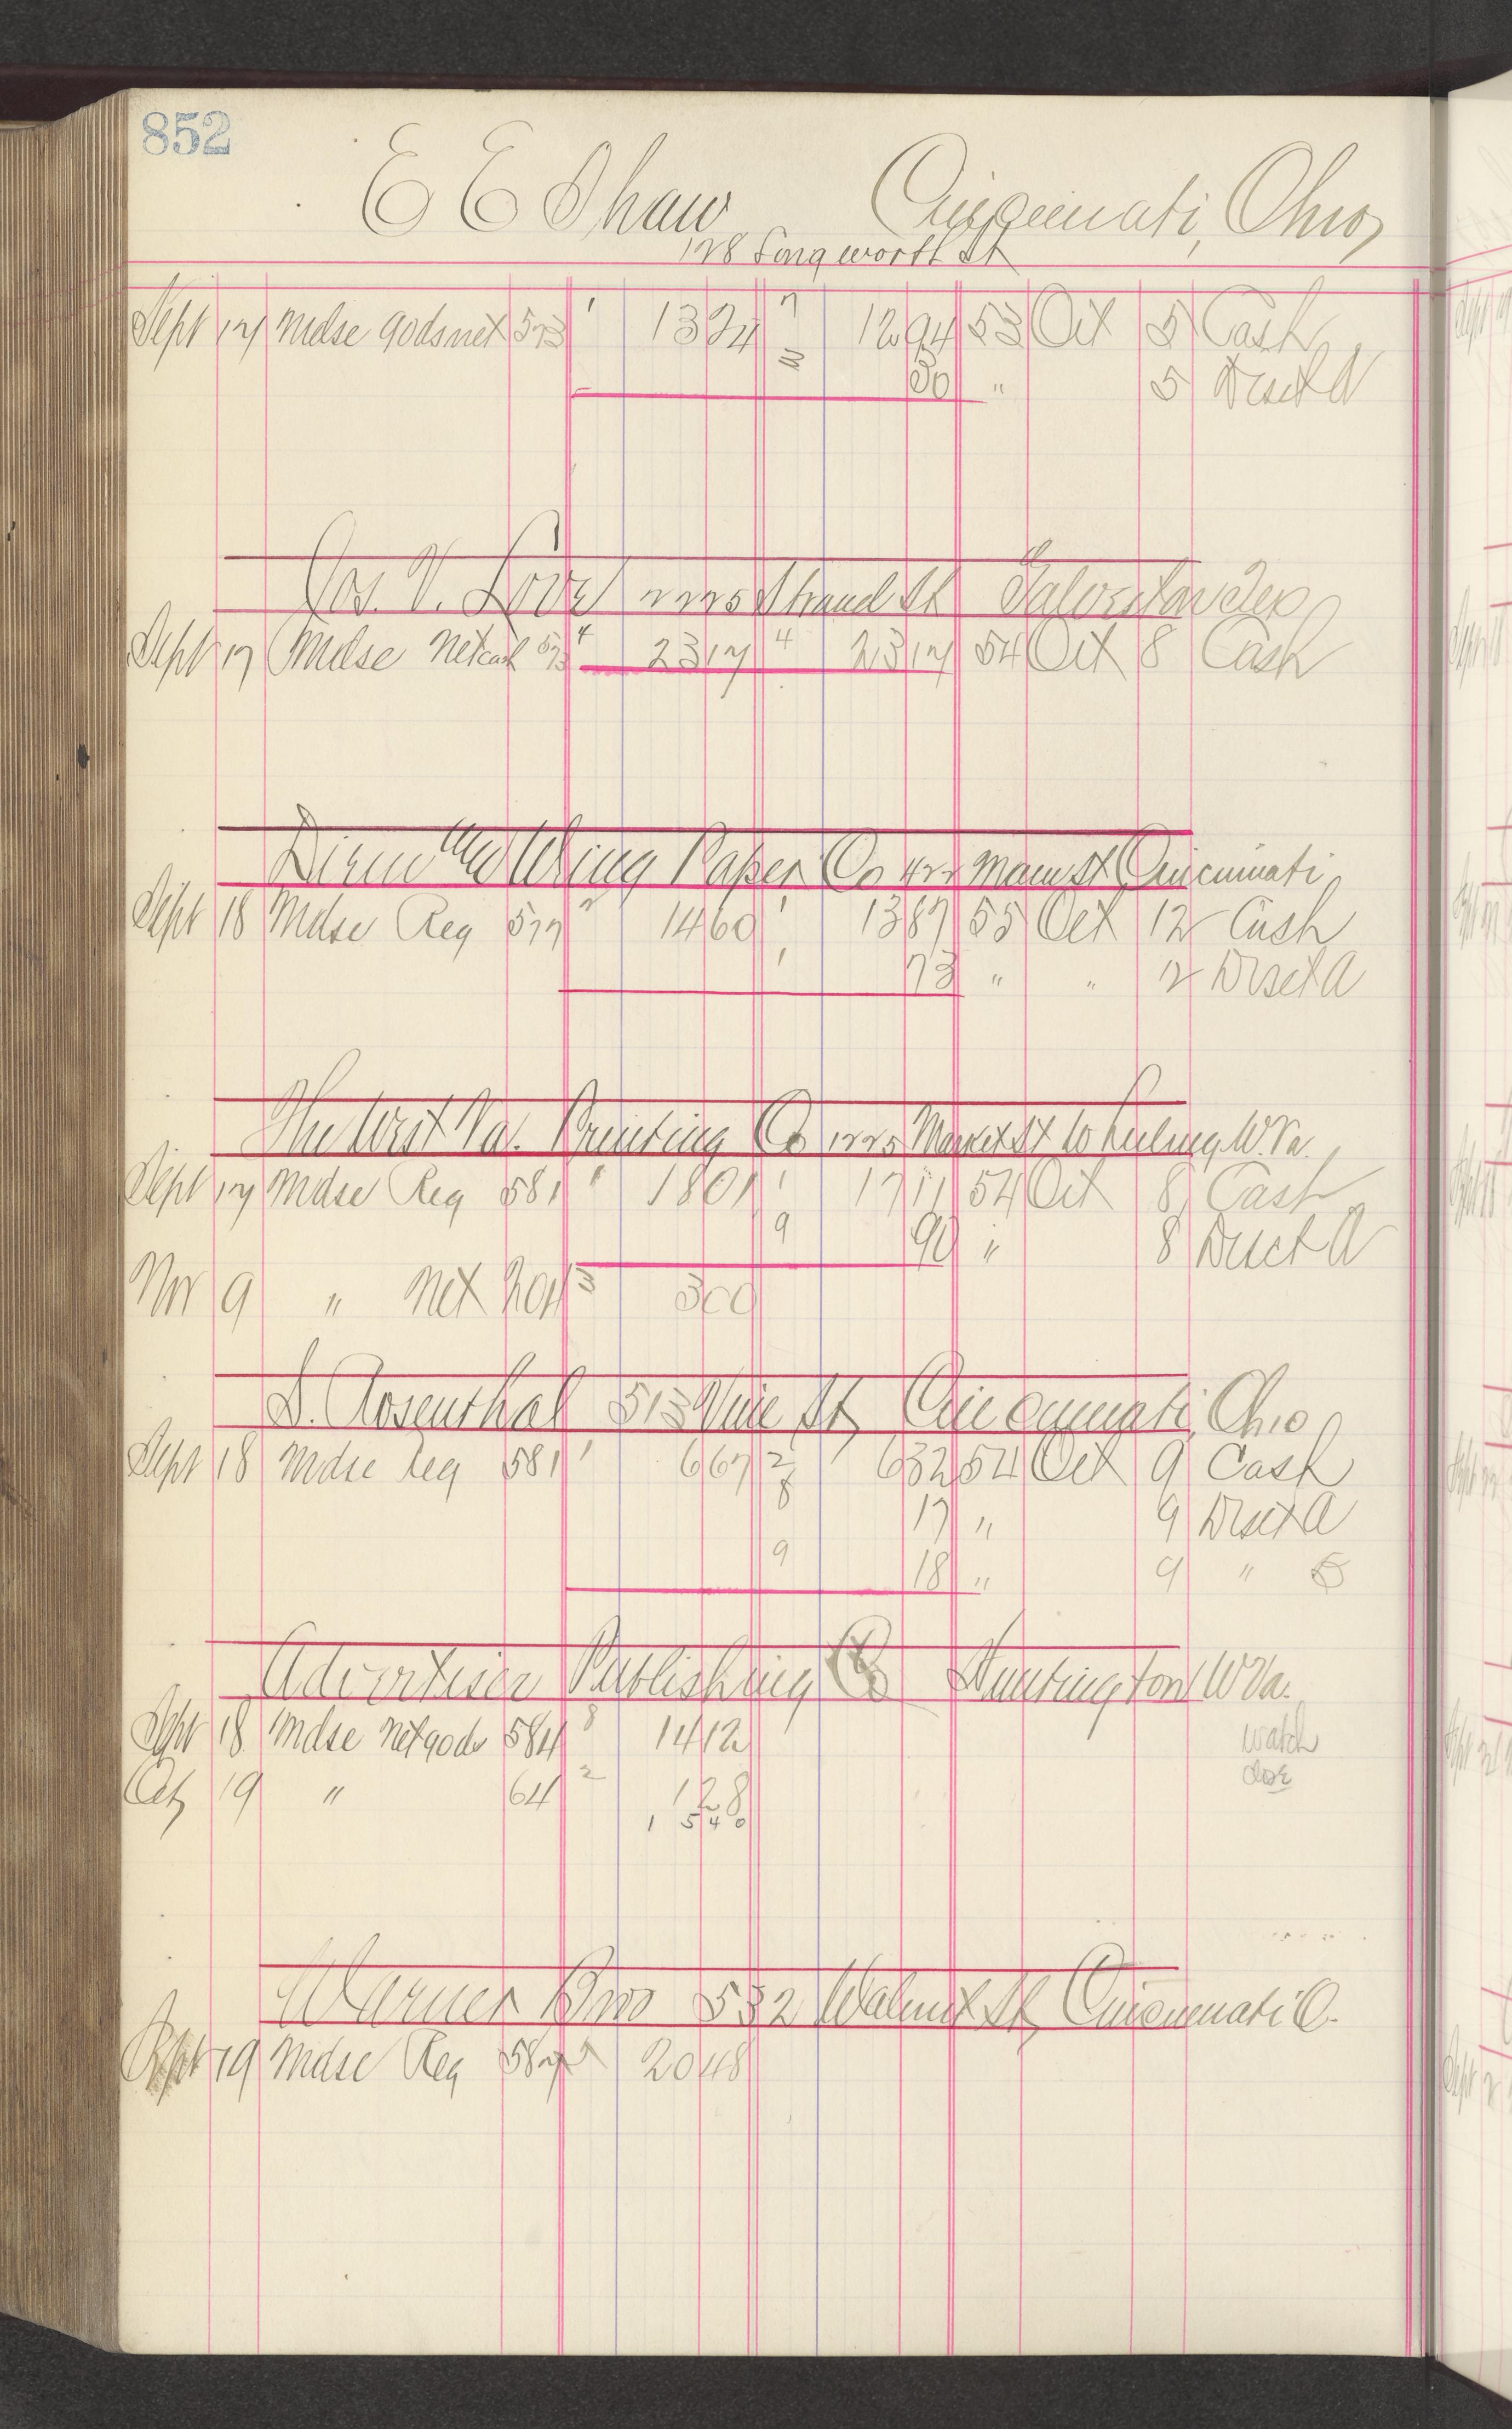 852
E E Shaw Cincinnati, Ohio,
128 Longworth St
Sept 17 Mdse 90 ds net 573 1 13 24 7 12 94 53 Oct 5 Cash
3 30 " 5 Disct A
Jos. V. Love 2225 Strand St Galveston Tex
Sept 17 Mdse Net cash 573 4 23 17 4 23 17 54 Oct 8 Cash
Wing Paper Co 422 Main St Cincinnati
Sept 18 Mdse Reg 577 2 14 60 1 13 87 55 Oct 12 Cash
1 73 " " 12 Disct A
The West Va. Printing Co 1225 Market St Wheeling W. Va.
Sept 17 Mdse Reg 581 1 18 01 1 17 11 54 Oct 8 Cash
9 90 " 8 Disct A
Nov 9 " Net 3 3 00
S. Rosenthal 513 Vine St, Cincinnati, Ohio
Sept 18 Mdse Reg 581 1 6 67 2 6 32 54 Oct 9 Cash
8 17 " 9 Disct A
9 18 " 9 "
Advertiser Publishing Co Huntington W Va.
Sept 18 Mdse Net 90 ds 584 8 14 12 watch
close
Oct 19 " 64 2 1 28
15 40
Warner Bros 532 Walnut St, Cincinnati O.
Sept 19 Mdse Reg 587 20 48